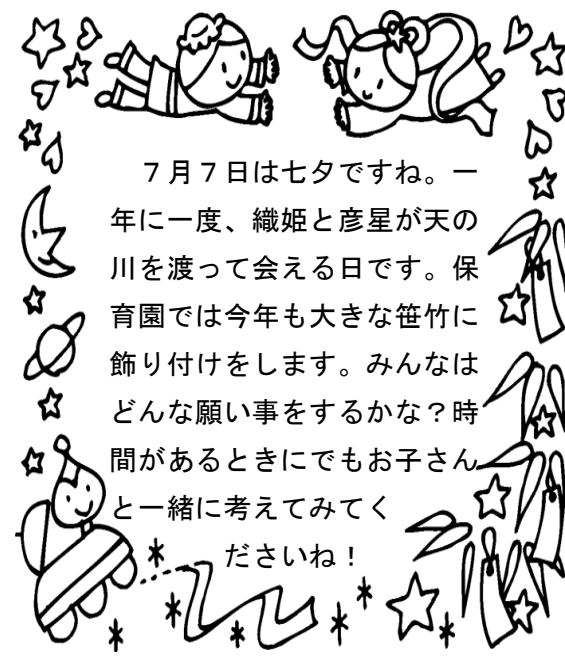 ７月７日は七夕ですね。一
年に一度、織姫と彦星が天の
川を渡って会える日です。保
育園では今年も大きな笹竹に
飾り付けをします。みんなは
どんな願い事をするかな？時
間があるときにでもお子さん
と一緒に考えてみてく
ださいね！